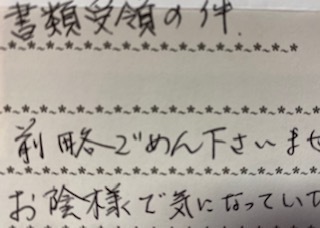 書類受領の件.
前略ごめん下さいませ
お陰様で気になってい